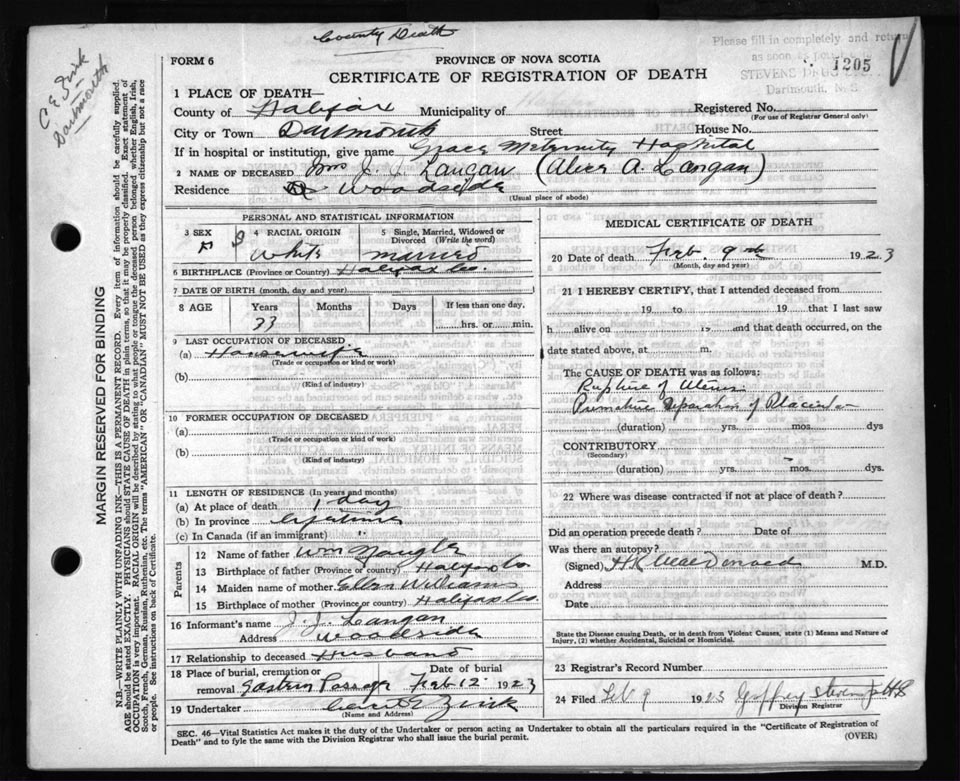 County Death
Please fill in completely and return
as soon as
STEVENS DRUG
Dartmouth, N. S.
1205
C E Zink
Dartmouth
FORM 6
PROVINCE OF NOVA SCOTIA
CERTIFICATE OF REGISTRATION OF DEATH
1 PLACE OF DEATH—
County of Halifax Municipality of Registered No.
(For use of Registrar General only)
City or Town Dartmouth Street House No.
If in hospital or institution, give name Grace Maternity Hospital
2 NAME OF DECEASED Mrs J. J. Langan (Alice A. Langan)
Residence Woodside
(Usual place of abode)
PERSONAL AND STATISTICAL INFORMATION
3 SEX 4 RACIAL ORIGIN 5 Single, Married, Widowed or Divorced (Write the word)
F White married
6 BIRTHPLACE (Province or Country) Halifax Co.
7 DATE OF BIRTH (month, day and year)
8 AGE Years Months Days If less than one day,
33 hrs. or min.
9 LAST OCCUPATION OF DECEASED
(a) Housewife
(Trade or occupation or kind or work)
(b)
(Kind of industry)
10 FORMER OCCUPATION OF DECEASED
(a)
(Trade or occupation or kind of work)
(b)
(Kind of industry)
11 LENGTH OF RESIDENCE (In years and months)
(a) At place of death 1 day
(b) In province lifetime
(c) In Canada (if an immigrant) "
Parents
12 Name of father Wm Naugle
13 Birthplace of father (Province or country) Halifax Co.
14 Maiden name of mother Ellen Williams
15 Birthplace of mother (Province or country) Halifax Co.
16 Informant's name J. J. Langan
Address Woodside
17 Relationship to deceased Husband
18 Place of burial, cremation or Date of burial
removal Eastern Passage Feb 12 1923
19 Undertaker Zink
(Name and Address)
MEDICAL CERTIFICATE OF DEATH
20 Date of death Feb. 9th 1923
(Month, day and year)
21 I HEREBY CERTIFY, that I attended deceased from
19 to 19 that I last saw
h alive on 19 and that death occurred, on
date stated above, at m.
The CAUSE OF DEATH was as follows:
Rupture of Uterus
Premature Separation of Placenta
(duration) yrs. mos. dys
CONTRIBUTORY
(Secondary)
(duration) yrs. mos. dys.
22 Where was disease contracted if not at place of death?
Did an operation precede death? Date of
Was there an autopsy?
(Signed) H K MacDonald M.D.
Address
Date
State the Disease causing Death, or in death from Violent Causes, state (1) Means and Nature of
Injury, (2) whether Accidental, Suicidal or Homicidal.
23 Registrar's Record Number
24 Filed Feb 9 1923 Geoffrey Stevens
Division Registrar
SEC. 46—Vital Statistics Act makes it the duty of the Undertaker or person acting as Undertaker to obtain all the particulars required in the "Certificate of Registration of
Death" and to fyle the same with the Division Registrar who shall issue the burial permit.
(OVER)
MARGIN RESERVED FOR BINDING
N.B.—WRITE PLAINLY WITH UNFADING INK—THIS IS A PERMANENT RECORD. Every item of information should be carefully supplied.
AGE should be stated EXACTLY. PHYSICIANS should STATE CAUSE OF DEATH in plain terms, so that it may be properly classified. Exact statement of
OCCUPATION is very important. RACIAL ORIGIN will be described by stating to what people or tongue the deceased person belonged whether English, Irish,
Scotch, French, German, Russian, Ruthenian, etc. The terms "AMERICAN" OR "CANADIAN" MUST NOT BE USED as they express citizenship but not a race
or people. See instructions on back of Certificate.